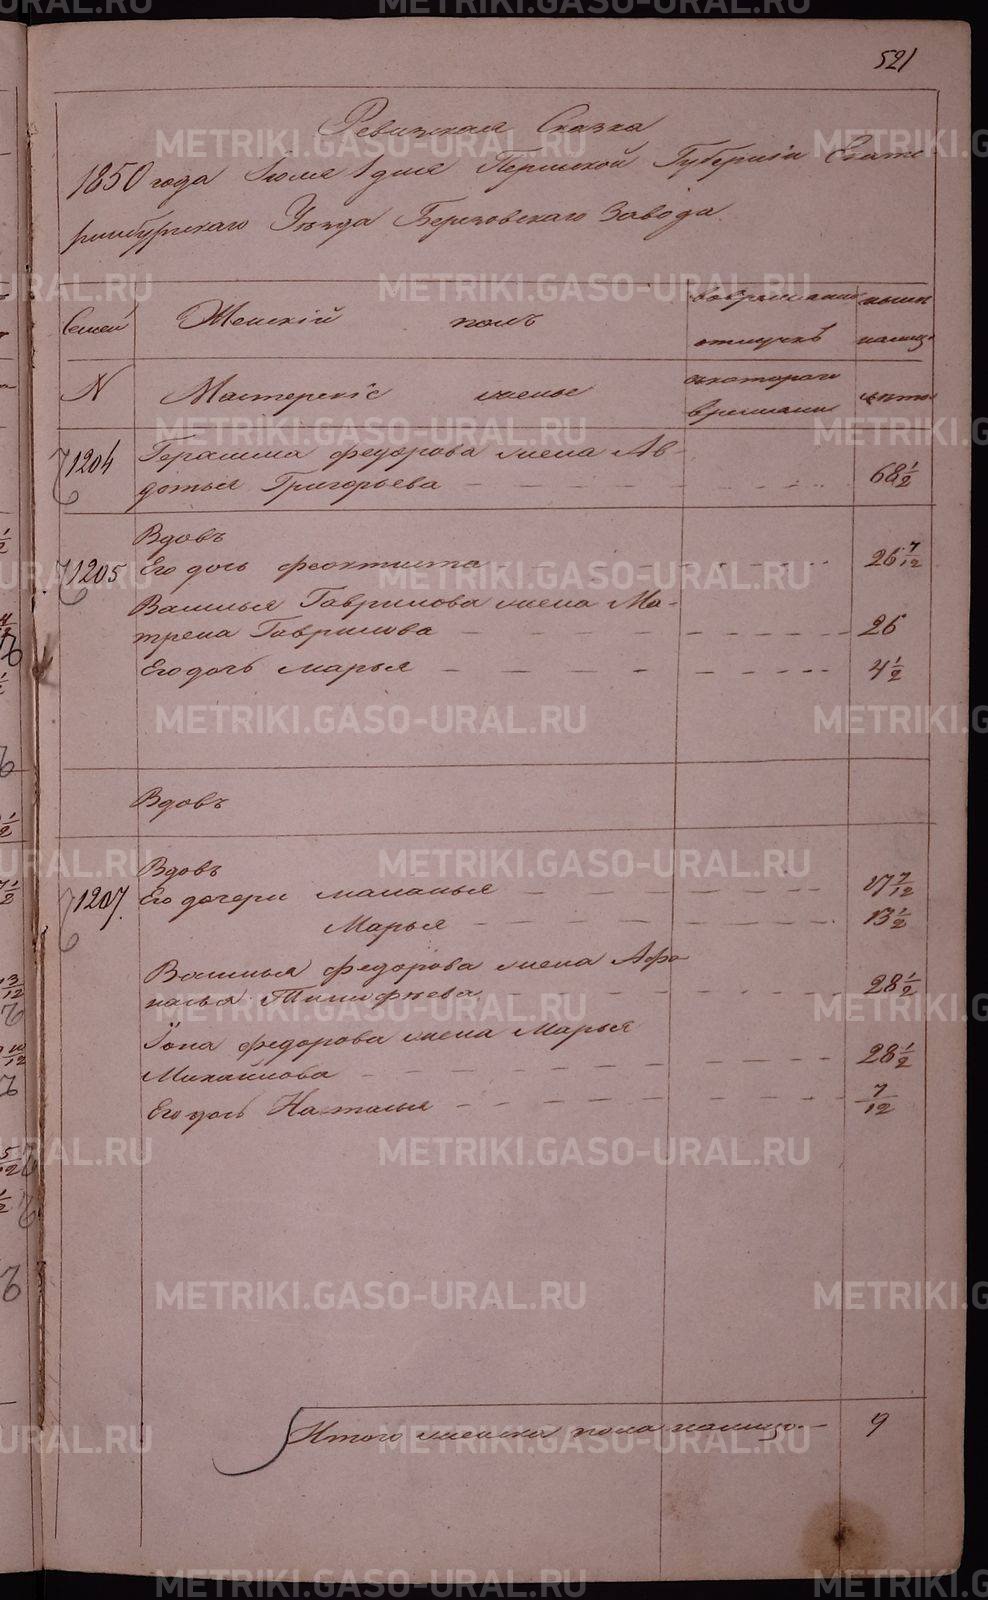 521
Ревизская Сказка
1850 года Июля 1 дня Пермской Губернiи Екате-
ринбургскаго Уѣзда Березовскаго Завода.
Семей Женскiй полъ во временной отлучкѣ ныне на лицо
№ Мастерскiе жены съ котораго времени лѣта
1204 Герасима Федорова жена Ав-
дотья Григорьева 68 1/2
Вдовъ
1205 Его дочь Феоктиста 26 7/12
Василья Гаврилова жена Ма-
трена Гаврилова 26
Его дочь Марья 4 1/2
Вдовъ
Вдовъ
1207. Его дочери Маланья 17 7/12
Марья 13 1/2
Василья Федорова жена Афо-
насья Тимофѣева 28 1/2
Iона Федорова жена Марья
Михайлова 28 1/2
Его дочь Наталья 7/12
Итого женска пола на лицо 9
METRIKI.GASO-URAL.RU